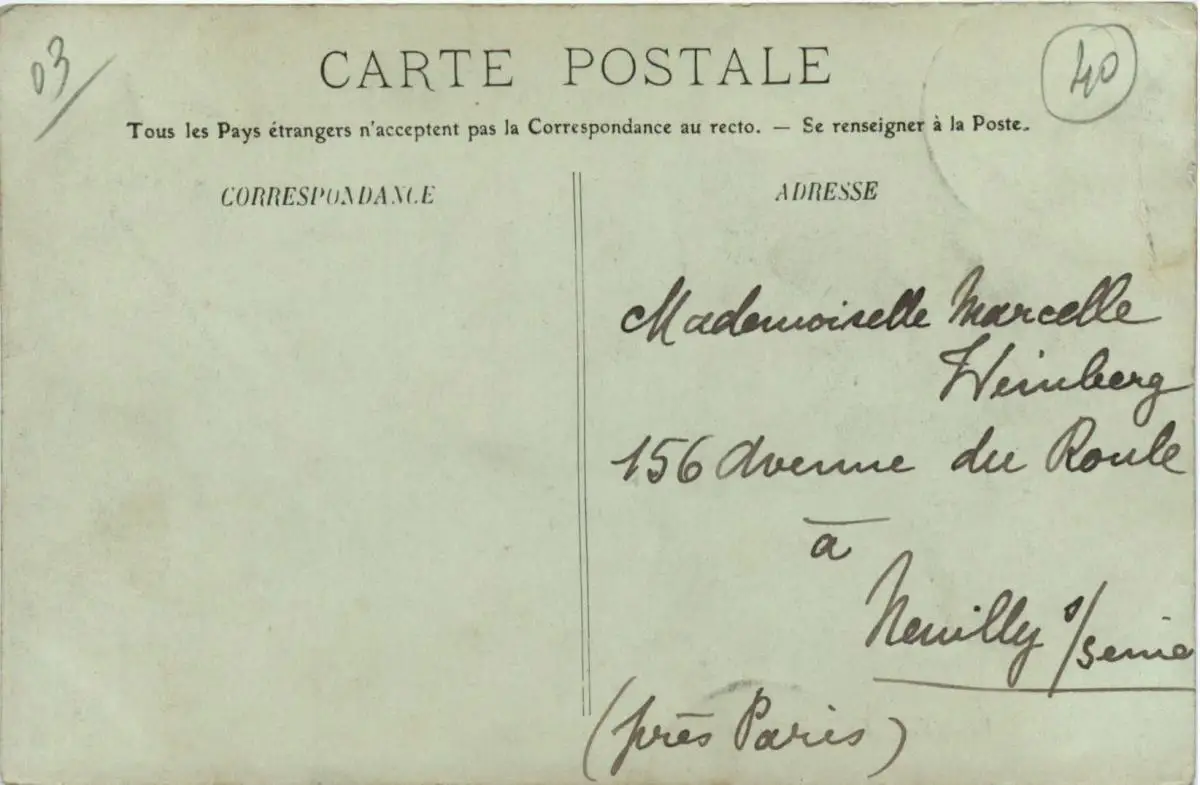 03/
CARTE POSTALE
40
Tous les Pays étrangers n'acceptent pas la Correspondance au recto. — Se renseigner à la Poste.
CORRESPONDANCE
ADRESSE
Mademoiselle Marcelle
Weinberg
156 Avenue du Roule
à
Neuilly s/Seine
(près Paris)